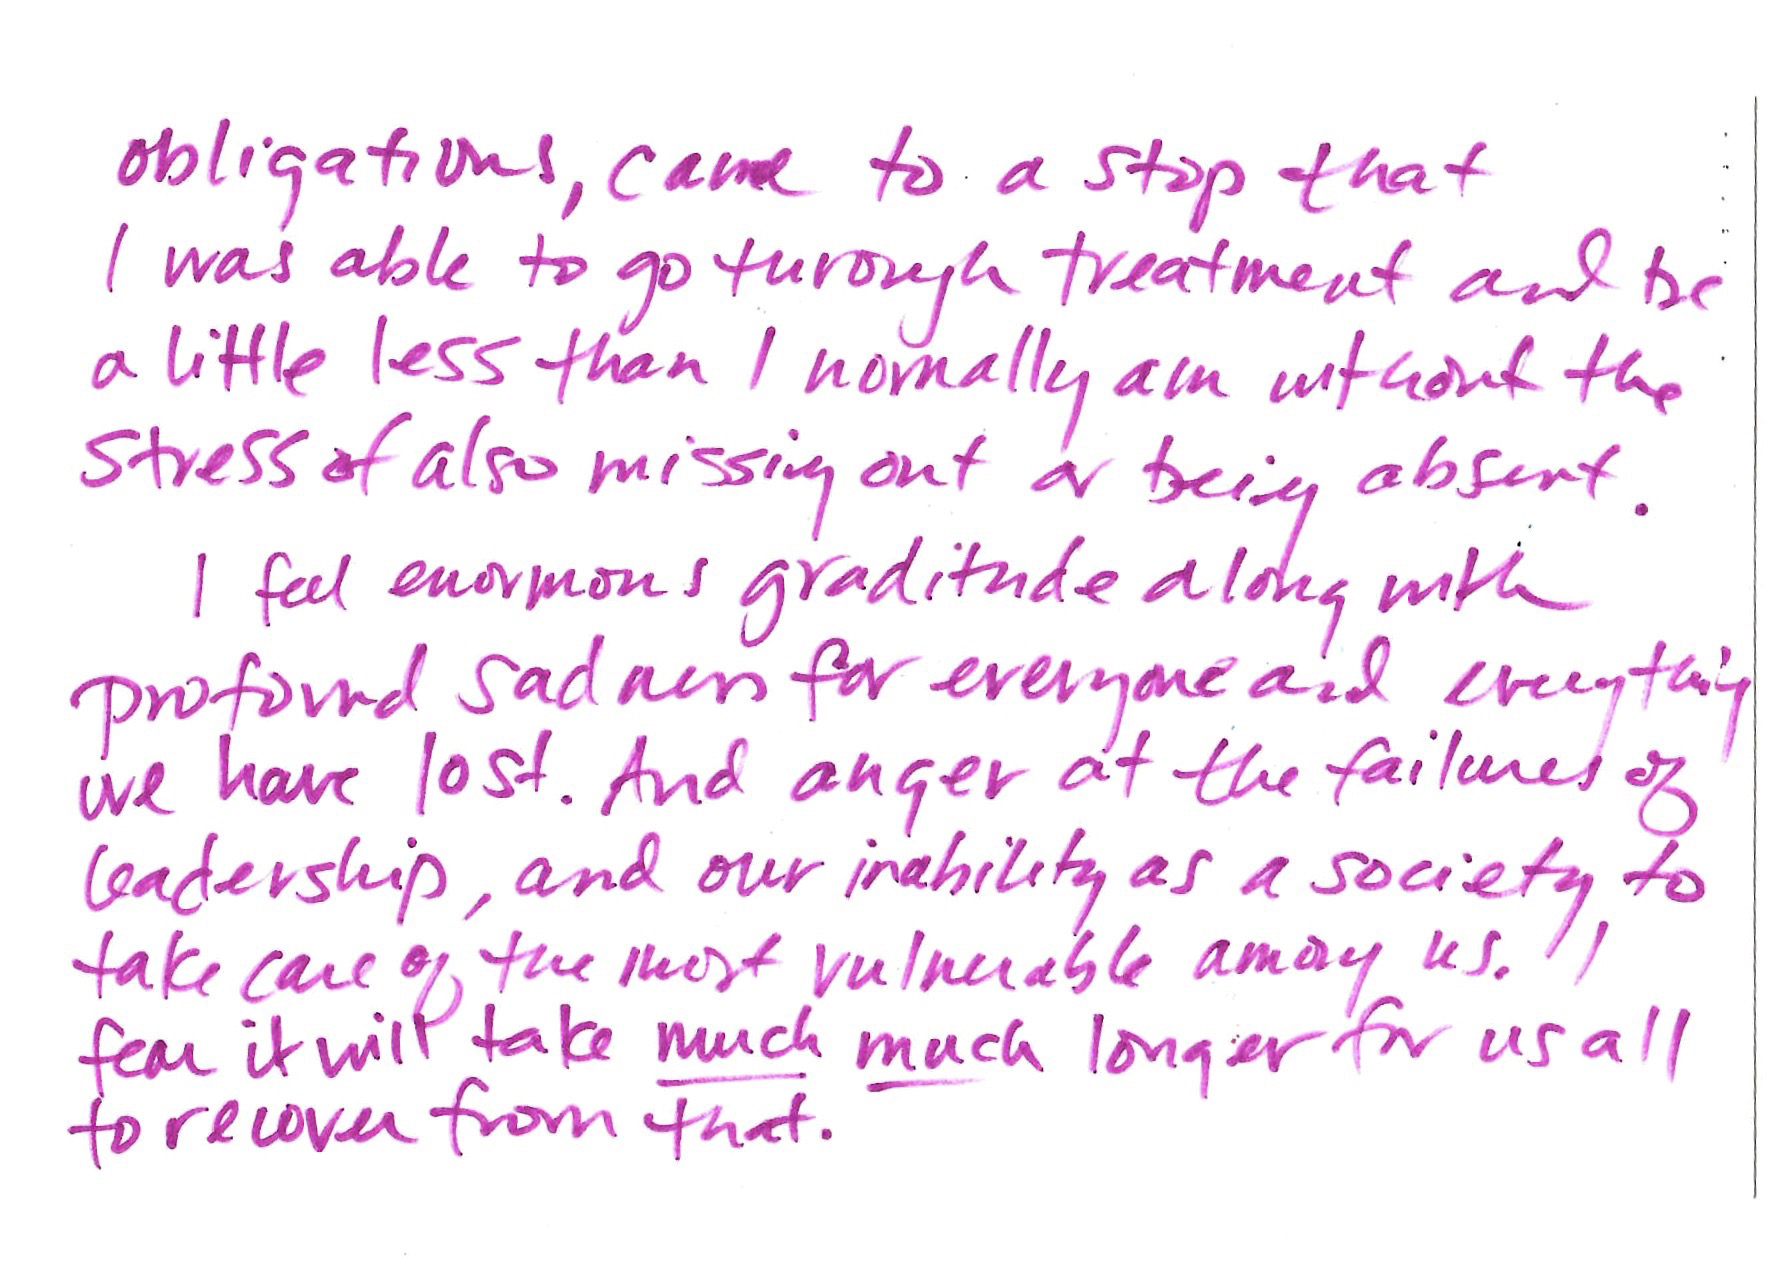 obligations, came to a stop that
I was able to go through treatment and be
a little less than I normally am without the
stress of also missing out or being absent.
I feel enormous graditude along with
profound sadness for everyone and everything
we have lost. And anger at the failures of
leadership, and our inability as a society, to
take care of the most vulnerable among us. I
fear it will take much much longer for us all
to recover from that.